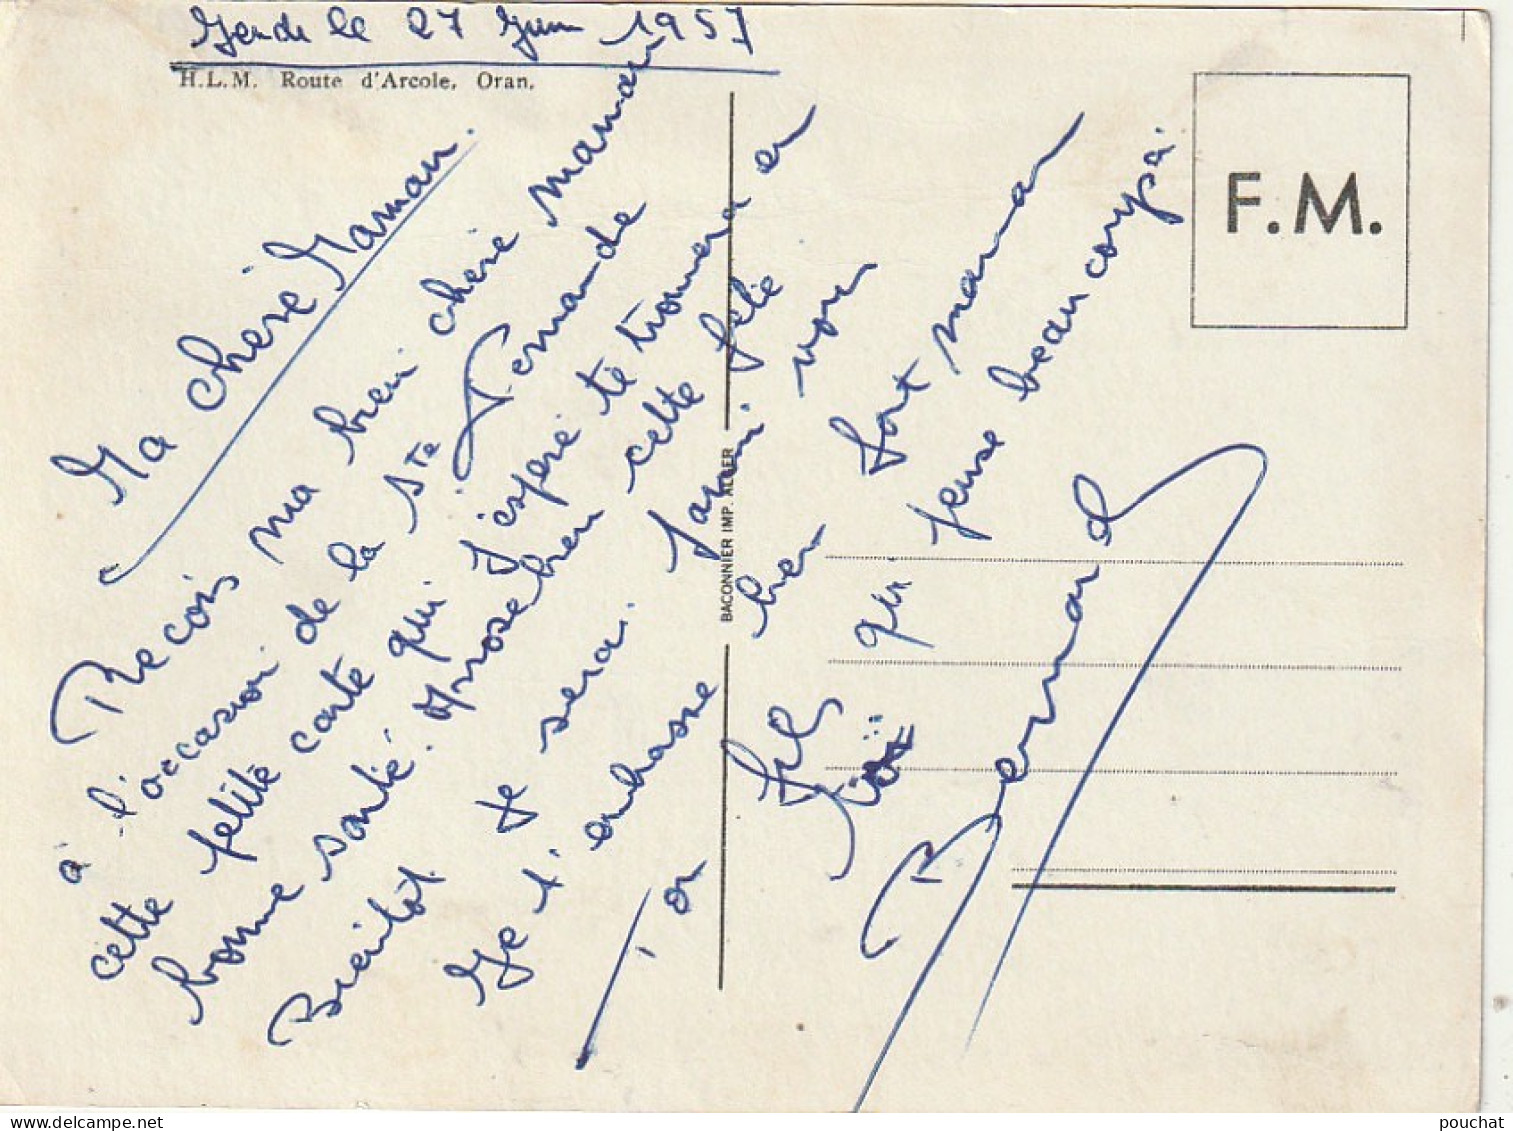 Jeudi le 27 Juin 1957
H.L.M. Route d'Arcole, Oran.
F.M.
BACONNIER IMP. ALGER
Ma chère Maman.
Recois ma bien chère maman
à l'occasion de la Ste Fernande
cette petite carte qui j'espere te trouvera en
bonne santé. Arrose bien cette fête
Bientôt je serai parmi vous
Je t'embrasse bien fort maman
Ton fils qui pense beaucoup à
toi
Bernard
pouchat